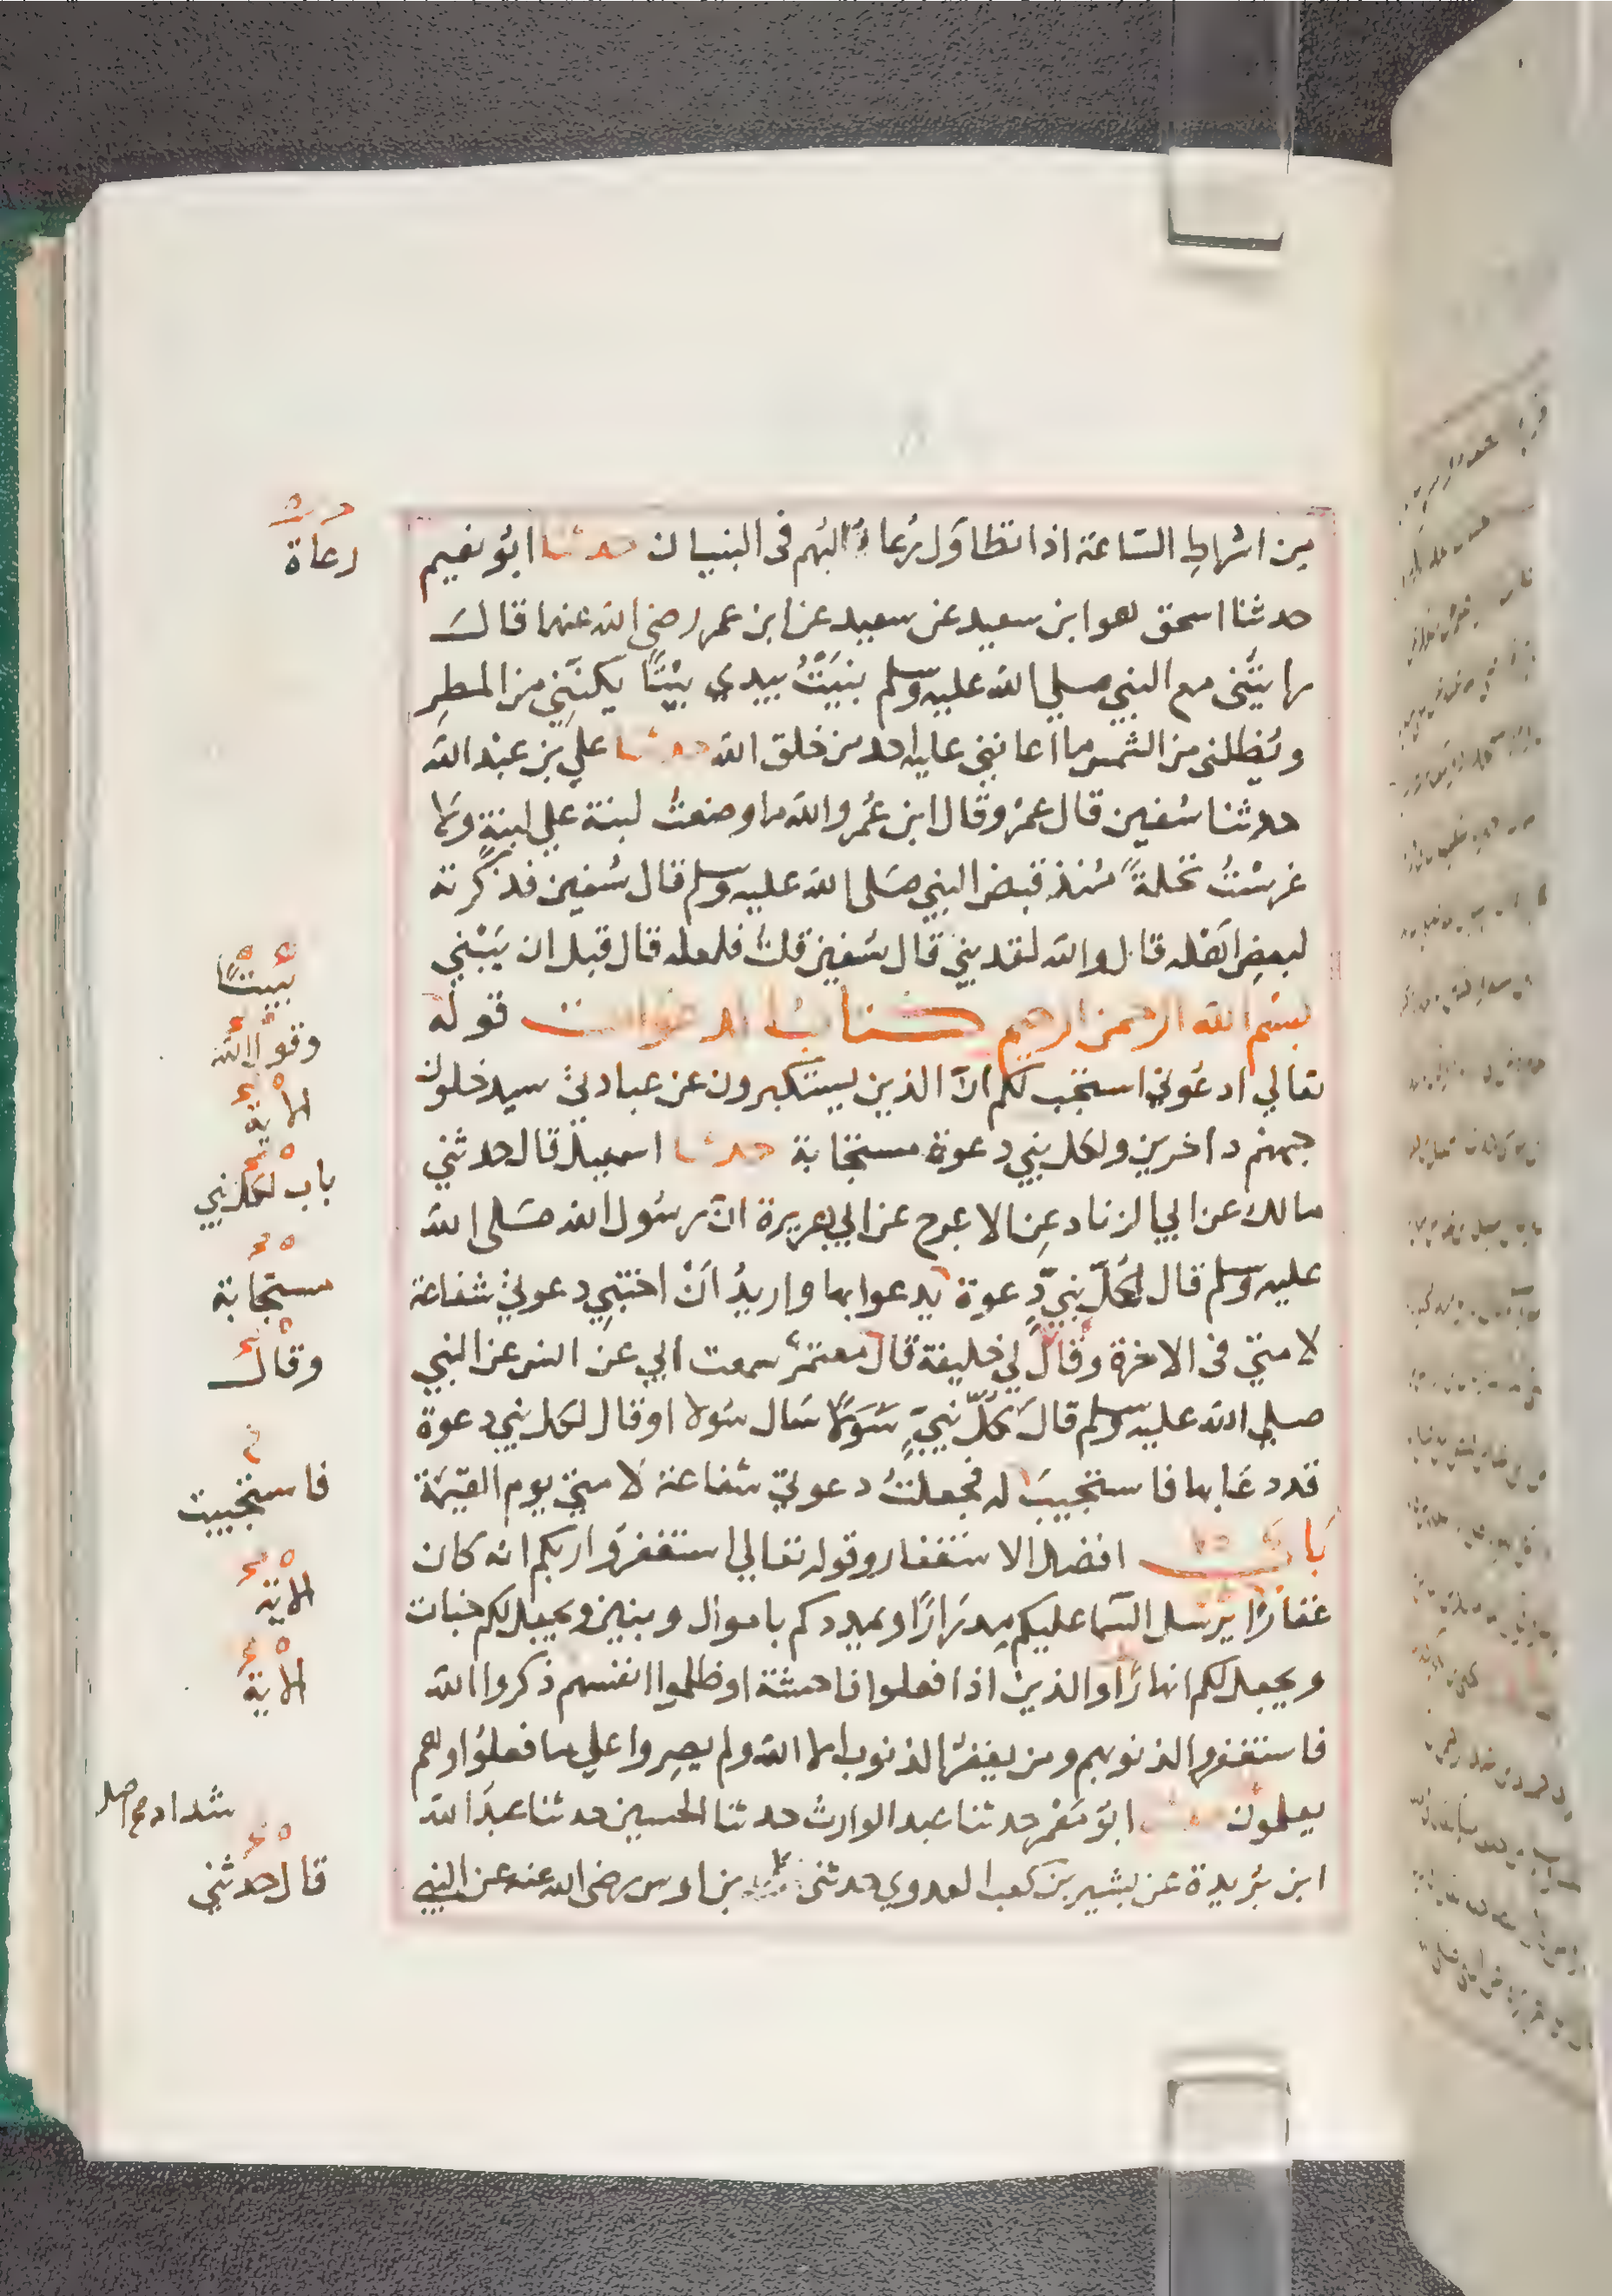 من اشراطِ السّاعة اذا تطاوَل رُعاءُ البُهم فى البنيان حدثنا ابُو نعيم
حدثنا اسحق هو ابن سعيد عن سعيد عن ابن عمر رضي الله عنهما قالَ
رايتُنى مع النبي صلي الله عليه وسلم بنيَتُ بيدي بيْتًا يُكننِّي من المطرِ
ويُظلنى من الشمس ما اعانني عليه احد من خلق الله حدثنا علي بن عبد الله
حدثنا سُفين قال عمرٌو قال ابن عُمر والله ما وضعتُ لبنة علي لبنةٍ ولا
غرسْتُ نخلةً مُنذ قبض النبي صَلى الله عليه وسلم قال سُفين فذكرته
لبعضِ اَهْله قال والله لقد بني قال سُفين قلتُ فلعله قال قبل ان يَبْني
بسم الله الرحمن الرحيم كتابُ الدعوات قوله
تعالي ادعُوني استجب لكم انّ الذين يستكبرون عن عبادتي سيدخلون
جهنم داخرين ولكل نبي دعوة مستجابة حدثنا اسمعيل قال حدثني
مالك عن ابي الزناد عن الاعرج عن ابي هريرة انّ رسُول الله صَلى الله
عليه وسلم قال لكُلّ نبيّ دعوة يدعوا بها واريدُ اَنْ اختبي دعوتي شفاعة
لامتي فى الاخرة وقال لي خليفة قال معتمرٌ سمعت ابي عن انس عن النبي
صلي الله عليه وسلم قالَ كُلّ نبيٍّ سَال سُولا او قال لكل نبي دعوة
قد دعَا بها فاستجيبَ له فجعلتُ دعوتي شفاعة لامتي يوم القيٰمة
بَابُ افضل الاستغفار وقوله تعالي استغفرُوا ربكم انه كان
غفارًا يُرسل السّما عليكم مِدرَارًا ويمددكم باموال وبنين ويجعل لكم جنات
ويجعل لكم انهارًا والذين اذا فعلوا فاحشة او ظلموا انفسهم ذكروا الله
فاستغفروا لذنوبهم ومن يغفرُ الذنوب الا الله ولم يصِروا علي ما فعلوُا وهم
يعلمون حدثنا ابُو مَعْمر حدثنا عبد الوارث حدثنا الحسين حدثنا عبدُ الله
ابن بُريدة عن بشير بن كعب العدوي حدثنى بن اوس رضى الله عنه عن النبي
رعاة
بيتًا
وقول الله
الاية
باب لكل نبي
مستجابة
وقال
فاستجيبت
الاية
الاية
شداد صح اصل
قال حدثني